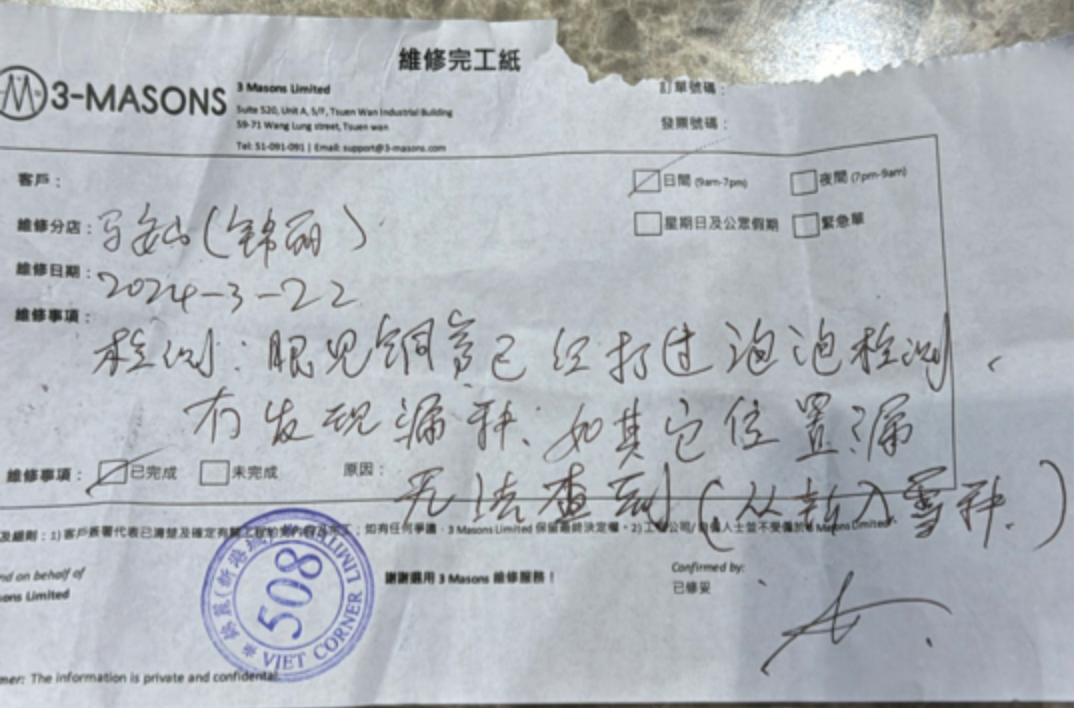 維修完工紙
3-MASONS
3 Masons Limited
Suite 520, Unit A, 5/F, Tsuen Wan Industrial Building
59-71 Wang Lung street, Tsuen wan
Tel: 51-091-091 | Email: support@3-masons.com
訂單號碼：
發票號碼：
客戶：
日間 (9am-7pm)
夜間 (7pm-9am)
維修分店：马鞍山（锦丽）
星期日及公眾假期
緊急單
維修日期：2024-3-22
維修事項：
检测：眼见铜喜已经打过泡泡检测，
冇发现漏种．如其它位置漏
維修事項： 已完成 未完成 原因：
无法查到（从新入雪种．）
及細則：1) 客戶簽署代表已清楚及確定有關工程；如有任何爭議，3 Masons Limited 保留最終決定權。2) 人士並不受僱於 3 Masons Limited.
nd on behalf of
ons Limited
謝謝選用 3 Masons 維修服務！
Confirmed by:
已修妥
508
VIET CORNER LIMITED
mer: The information is private and confidential